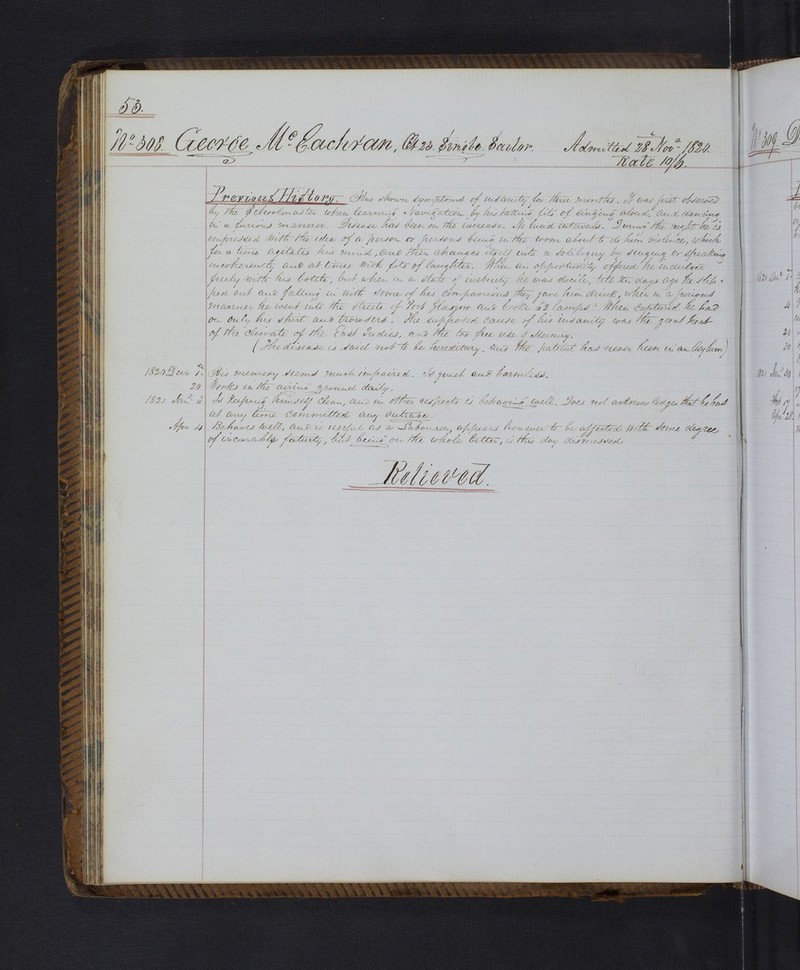 53.
No. 308. George McEachran, Æt 23. Single. Sailor. Admitted 28 Novr. 1820.
Rate 10/6.
Previous History. Has shown symptoms of insanity for three months. It was first observed
by the Schoolmaster when learning Navigation by his taking fits of singing aloud, and dancing
in a furious manner. Disease has been on the increase. No lucid intervals. During the night he is
impressed with the idea of a person or persons being in the room about to do him violence, which
for a time agitates his mind, and then changes itself into a soliloquy by singing or speaking
incoherently and at times with fits of laughter. When an opportunity offered he indulged
freely with his bottle, but when in a state of inebriety he was docile, till ten days ago he slip-
ped out and falling in with some of his companions they gave him drink, when in a furious
manner he went into the streets of Port Glasgow and broke 23 lamps. When captured he had
on only his shirt and trousers. His supposed cause of his insanity was the great heat
of the climate of the East Indies, and the too free use of Mercury.
(The disease is said not to be hereditary, and the patient has never been in an Asylum)
1820 Decr. 7. His memory seems much impaired. Is quiet and harmless.
20 Works in the airing ground daily.
1821 Jany. 3 Is keeping himself clean, and in other respects is behaving well. Does not acknowledge that he has
at any time committed any outrage.
Apr. 4 Behaves well, and is useful as a Labourer, appears however to be affected with some degree
of incurable fatuity, but being on the whole better, is this day dismissed
Relieved.
No. 309